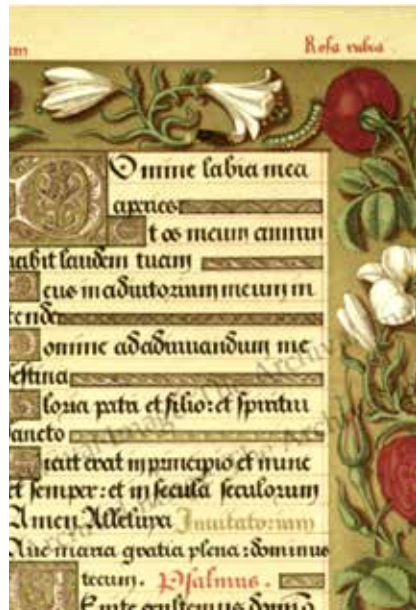 Rosa rubia
Omine labia mea
aperies
t os meum annun
habit laudem tuam
eus in adiutorium meum in
tende
omine ad adiuuandum me
festina
loria patri et filio: et spiritui
sancto
icut erat in principio et nunc
et semper: et in secula seculorum
Amen Alleluya Inuitatorium
Aue maria gratia plena: dominus
tecum. Psalmus.